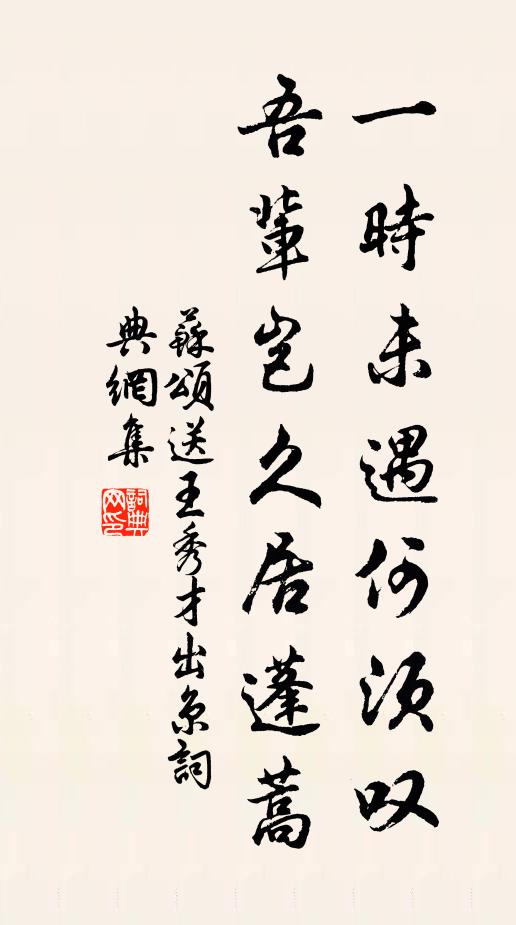 一時未遇何須叹
吾輩岂久居蓬蒿
蘇頌送王秀才出京詞
典網集
詞典网印